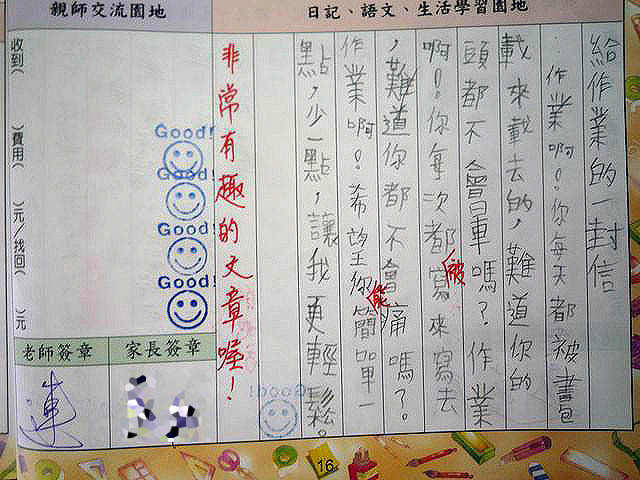 日記、語文、生活學習園地
給作業的一封信
作業啊!你每天都被書包
載來載去的,難道你的
頭都不會暈嗎?作業
啊!你每次都被寫來寫去
,難道你都不會痛嗎?
作業啊!希望你能簡單一
點,少一點,讓我更輕鬆。
Good!
非常有趣的文章喔!
親師交流園地
Good!
Good!
Good!
Good!
收到( )費用( )元/找回( )元
家長簽章
老師簽章
連
16